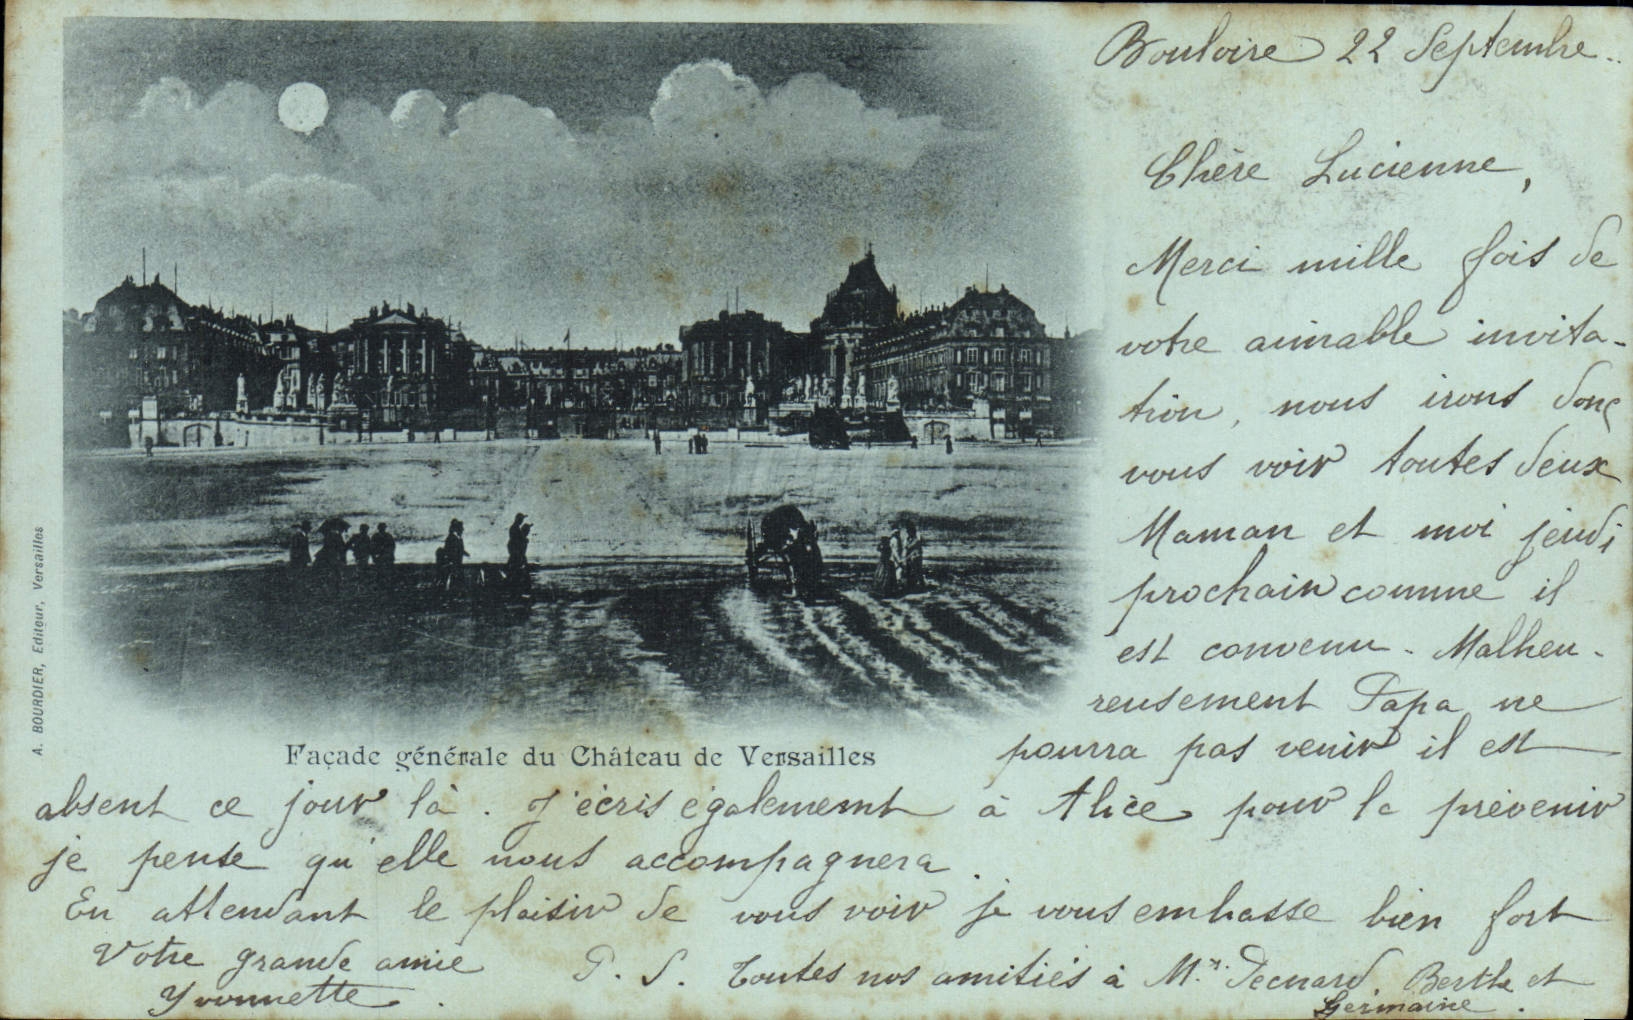 Bouloire 22 Septembre..
Chère Lucienne,
Merci mille fois de
votre aimable invita-
tion, nous irons donc
vous voir toutes deux
Maman et moi jeudi
prochain comme il
est convenu. Malheu-
reusement Papa ne
pourra pas venir il est
absent ce jour là. J'écris également à Alice pour la prévenir
je pense qu'elle nous accompagnera.
En attendant le plaisir de vous voir je vous embrasse bien fort
Votre grande amie
Yvonnette.
P. S. Toutes nos amitiés à Mr. Berthe et
Germaine.
Façade générale du Château de Versailles
A. BOURDIER, Editeur, Versailles